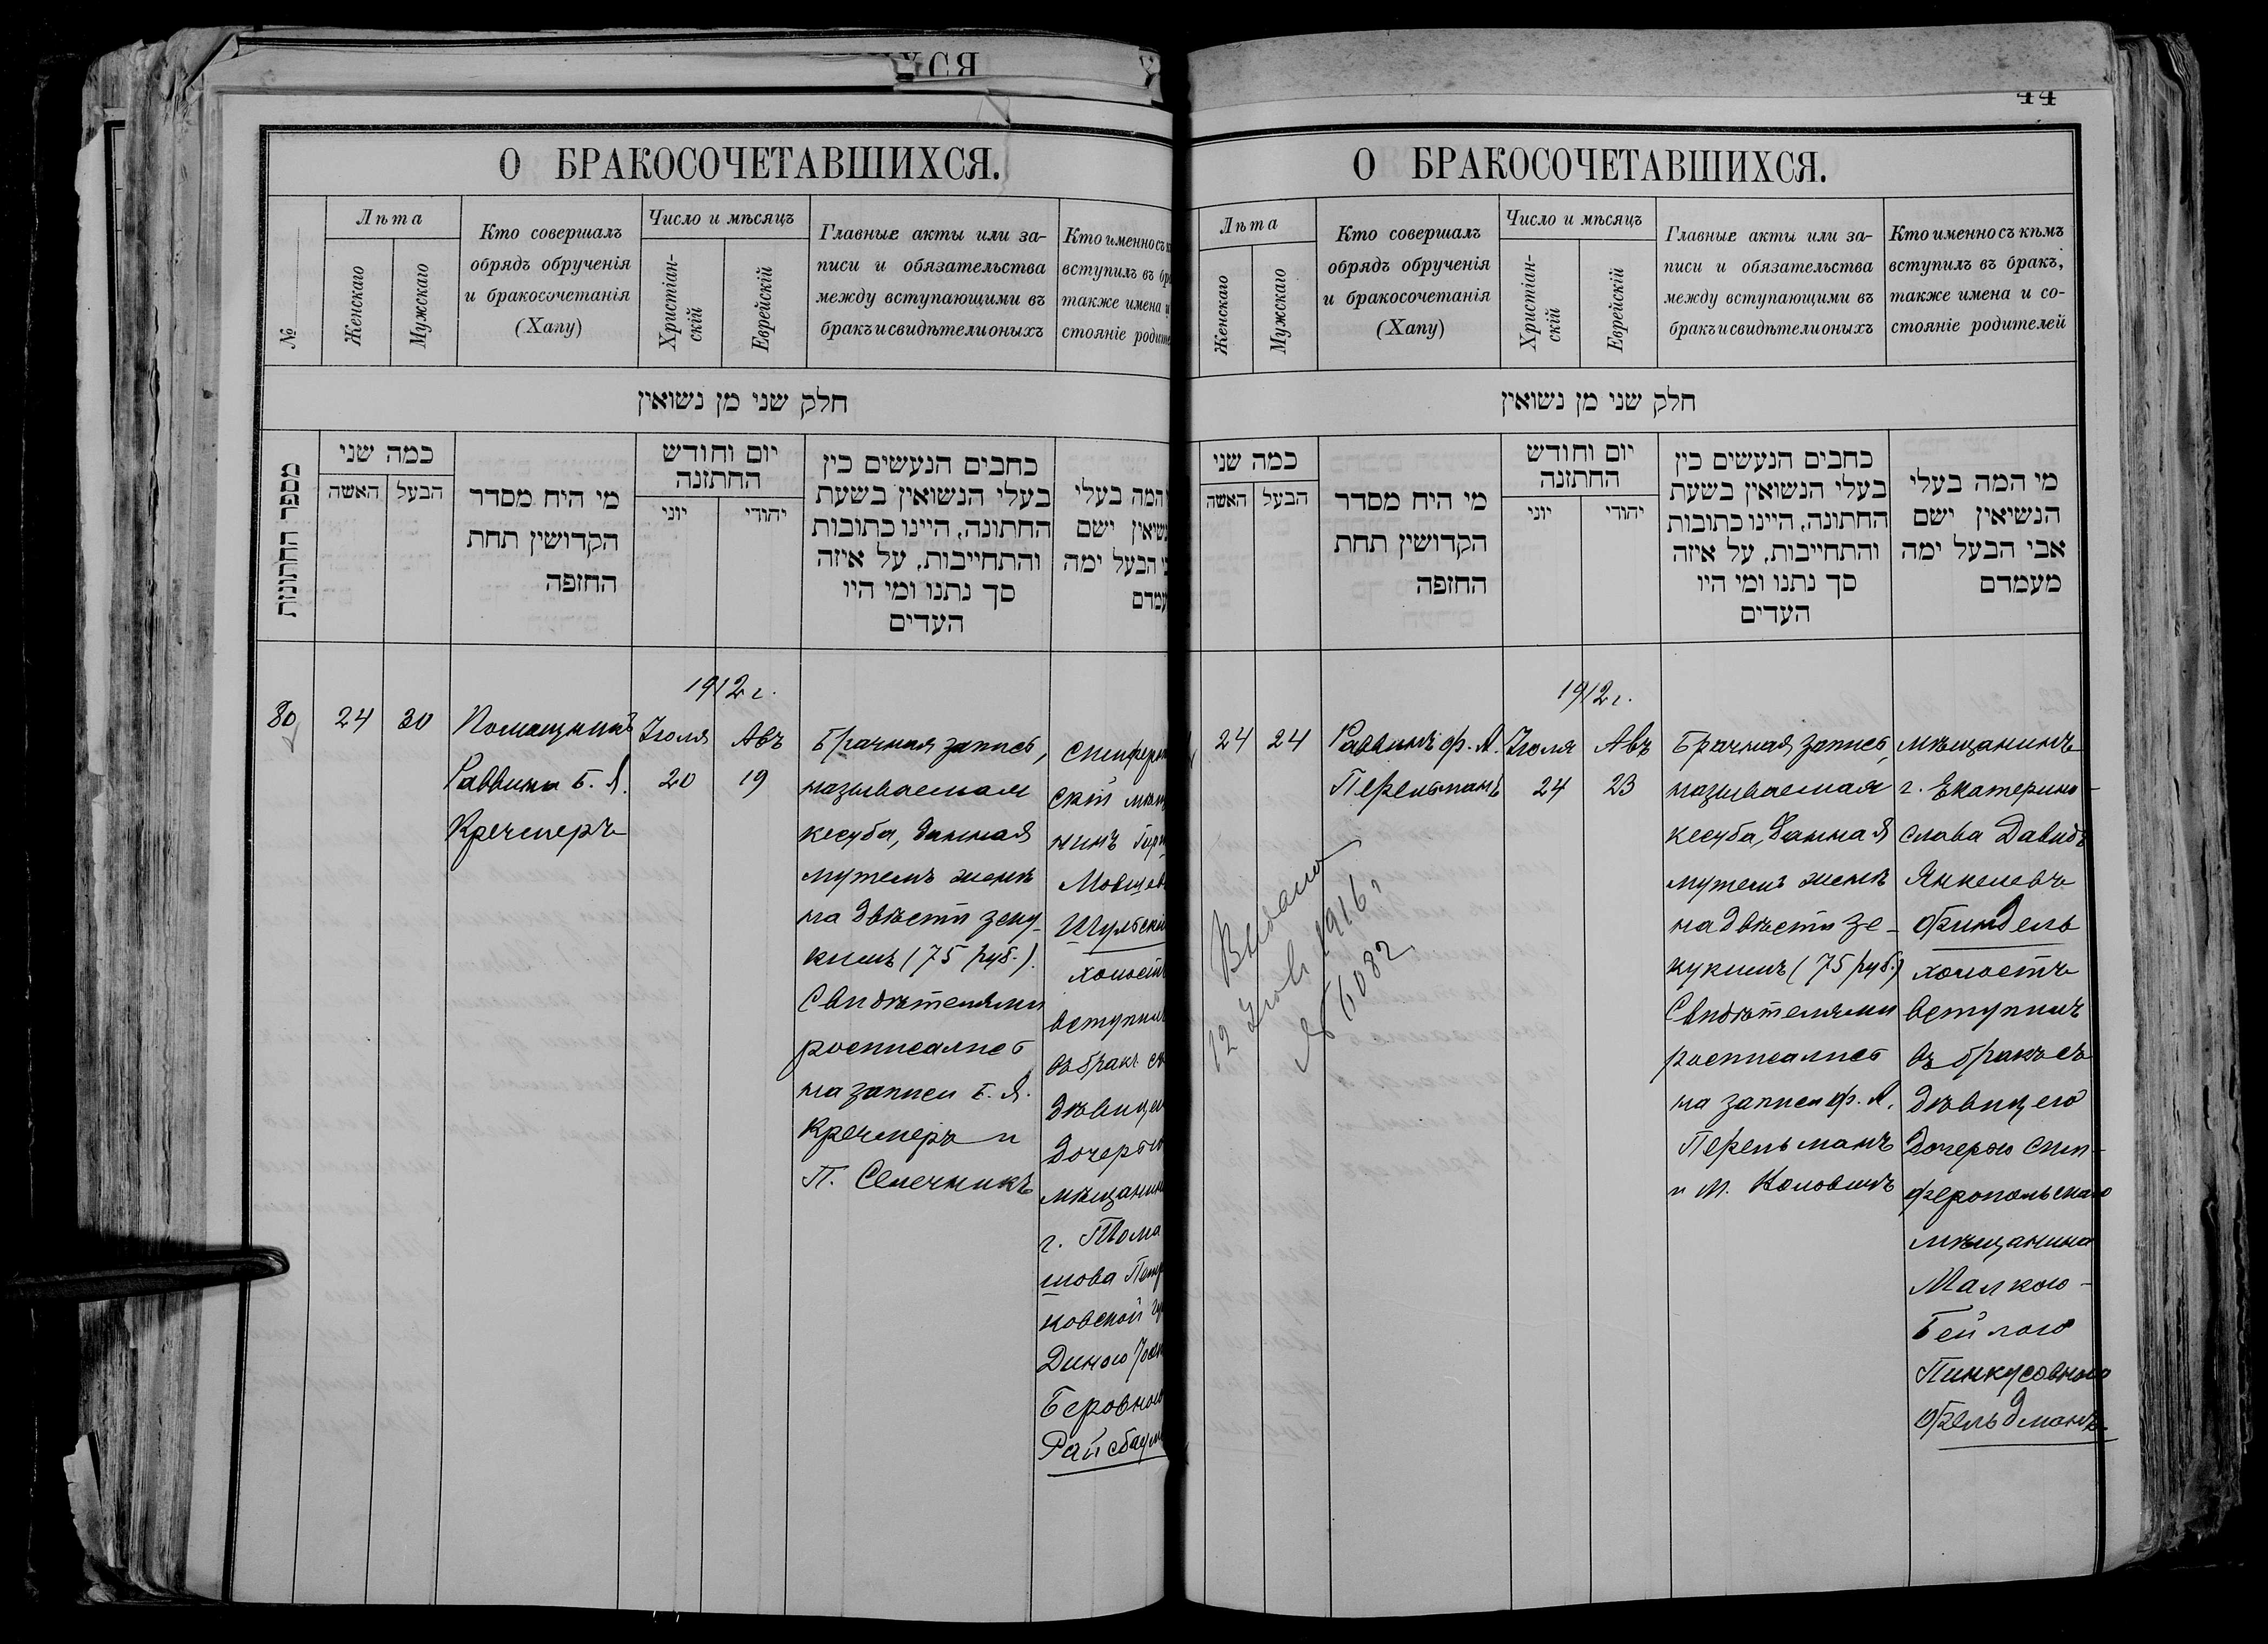 44
О БРАКОСОЧЕТАВШИХСЯ.
№
Лѣта
Женскаго
Мужскаго
Кто совершалъ
обрядъ обрученія
и бракосочетанія
(Хапу)
Число и мѣсяцъ
Христіан-
скій
Еврейскій
Главные акты или за-
писи и обязательства
между вступающими въ
бракъ и свидѣтели оныхъ
Кто именно съ
вступилъ въ
также имена
стояніе
חלק שני מן נשואין
מספר החתונות
כמה שני
האשה
הבעל
מי היח מסדר
הקדושין תחת
החזפה
יום וחודש
החתזנה
יוני
יהודי
כחבים הנעשים כין
בעלי הנשואין בשעת
החתונה, היינו כתובות
והתחייבות, על איזה
סך נתנו ומי היו
העדים
המה בעלי
ישם
הבעל ימה
80
24
30
Помощникъ
Раввина Б. Я.
Кречмеръ
1912 г.
Іюля
20
Авъ
19
Брачная запись,
называемая
кесуба, данная
мужемъ женѣ
на двѣсти зеку-
кимъ (75 руб.).
Свидѣтелями
росписались
на записи Б. Я.
Кречмеръ и
П. Семечникъ
скій
Шульскій
холостъ
вступилъ
въ бракъ съ
дѣвицею
дочерью
г. Тома
шова
ковской
Диною
О БРАКОСОЧЕТАВШИХСЯ.
Лѣта
Женскаго
Мужскаго
Кто совершалъ
обрядъ обрученія
и бракосочетанія
(Хапу)
Число и мѣсяцъ
Христіан-
скій
Еврейскій
Главные акты или за-
писи и обязательства
между вступающими въ
бракъ и свидѣтели оныхъ
Кто именно съ кѣмъ
вступилъ въ бракъ,
также имена и со-
стояніе родителей
חלק שני מן נשואין
כמה שני
האשה
הבעל
מי היח מסדר
הקדושין תחת
החזפה
יום וחודש
החתזנה
יוני
יהודי
כחבים הנעשים כין
בעלי הנשואין בשעת
החתונה, היינו כתובות
והתחייבות, על איזה
סך נתנו ומי היו
העדים
מי המה בעלי
הנשיאין ישם
אבי הבעל ימה
מעמדם
24
24
Раввинъ ф. А.
Перельманъ
1912 г.
Іюля
24
Авъ
23
Брачная запись,
называемая
кесуба, данная
мужемъ женѣ
на двѣсти зе-
кукимъ (75 руб.)
Свидѣтелями
росписались
на записи ф. А.
Перельманъ
и М.
мѣщанинъ
г. Екатерино-
слава Давидъ
Янкелевъ
Финдель
холостъ
вступилъ
въ бракъ съ
дѣвицею
дочерью сим-
феропольскаго
мѣщанина
Малкою-
Бейлою
Пинкусовною
Фельдманъ
Выдано
12 1916 г
№ 6082